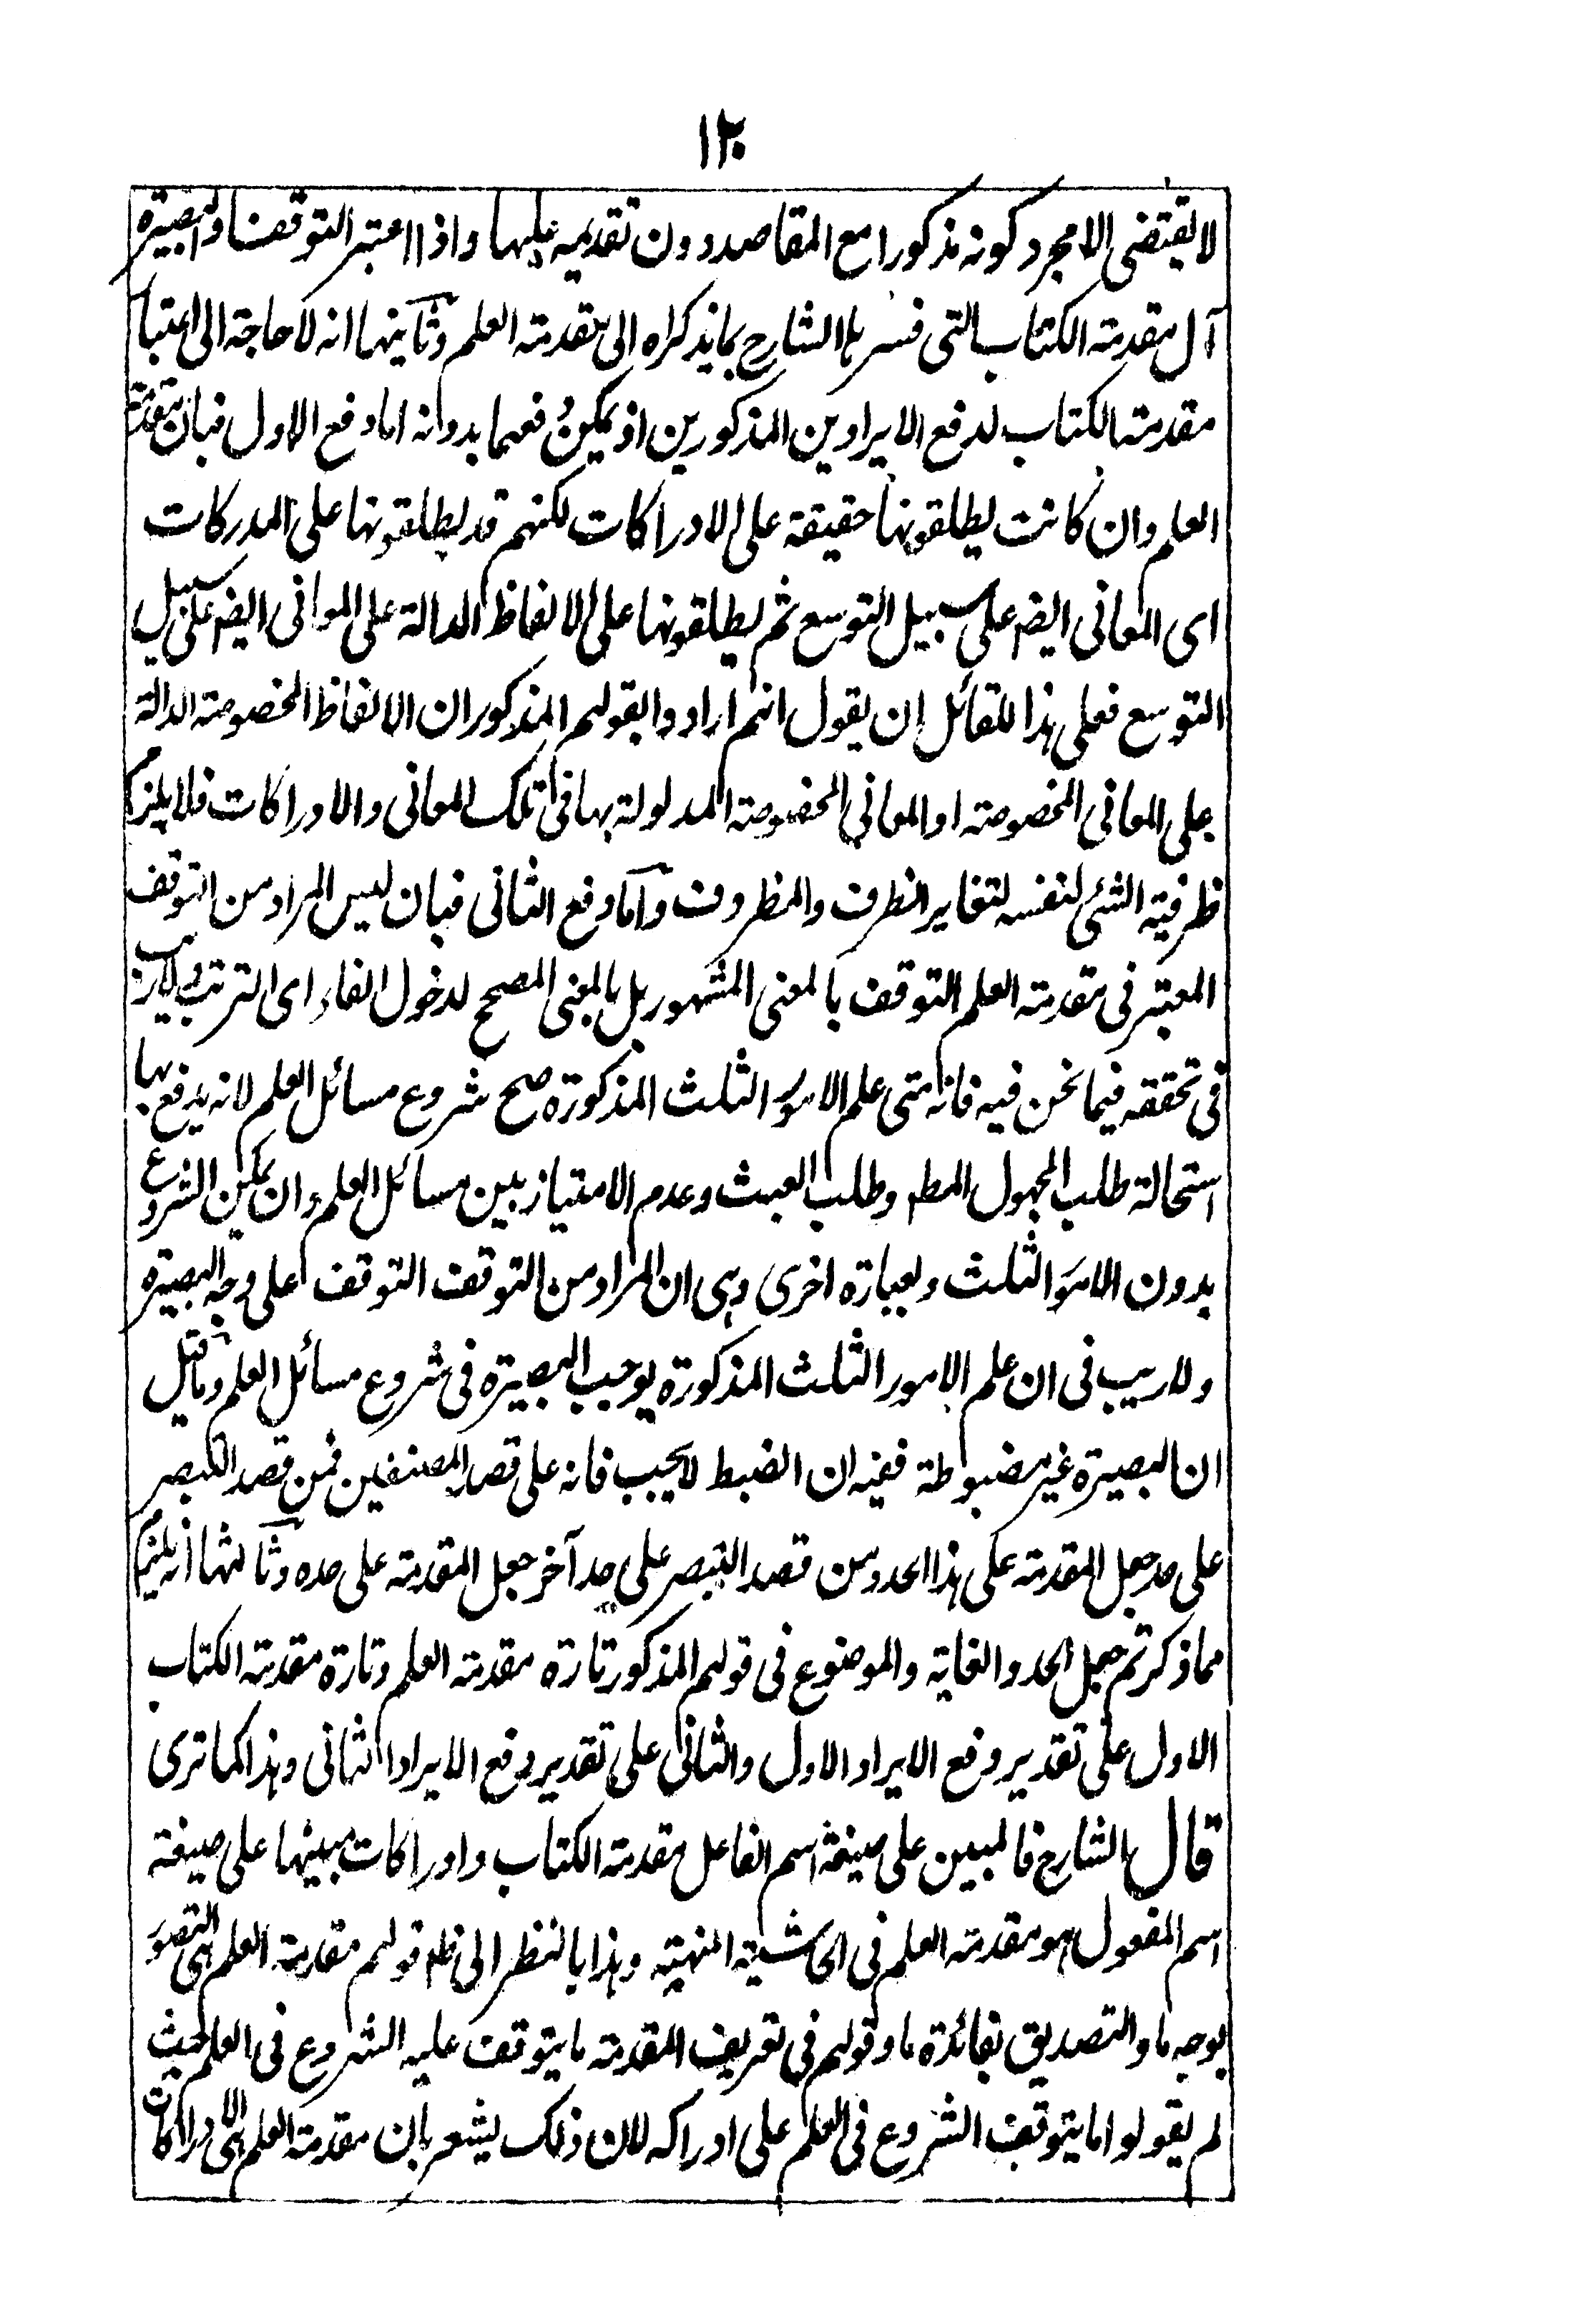 ١٢٠
لا يقتضى الا مجرد كونه مذكورا مع المقاصد دون تقديمه عليها واذا اعتبر التوقف او البصيرة
آل مقدمة الكتاب التى فسرها الشارح بما يذكراه الى مقدمة العلم وثانيهما انه لا حاجة الى اعتبار
مقدمة الكتاب لدفع الايرادين المذكورين اذ يمكن دفعهما بدونه اما دفع الاول فبان مقدمة
العلم وان كانت يطلقونها حقيقة على الادراكات لكنهم قد يطلقونها على المدركات
اى المعانى ايضا على سبيل التوسع ثم يطلقونها على الالفاظ الدالة على المعانى ايضا على سبيل
التوسع فعلى هذا للقائل ان يقول انهم ارادوا بقولهم المذكور ان الالفاظ المخصوصة الدالة
على المعانى المخصوصة او المعانى المخصوصة المدلولة بها فى تلك المعانى والادراكات فلا يلزم
ظرفية الشئ لنفسه لتغاير الظرف والمظروف وآما دفع الثانى فبان ليس المراد من التوقف
المعتبر فى مقدمة العلم التوقف بالمعنى المشهور بل بالمعنى المصحح لدخول الفاء اى الترتب ولا ريب
فى تحققه فيما نحن فيه فانه متى علم الامور الثلث المذكورة صح شروع مسائل العلم لانه يدفع بها
استحالة طلب المجهول المطلق وطلب العبث وعدم الامتياز بين مسائل العلم وان يمكن الشروع
بدون الامور الثلث وبعبارة اخرى وهى ان المراد من التوقف التوقف على وجه البصيرة
ولا ريب فى ان علم الامور الثلث المذكورة يوجب البصيرة فى شروع مسائل العلم وما قيل
ان البصيرة غير مضبوطة ففيه ان الضبط لا يجب فانه على قصد المصنفين فمن قصد التبصر
على حد جعل المقدمة على هذا الحد ومن قصد التبصر على حد آخر جعل المقدمة على حده وثالثها انه يلزم
مما ذكرتم جعل الحد والغاية والموضوع فى قولهم المذكور تارة مقدمة العلم وتارة مقدمة الكتاب
الاول على تقدير دفع الايراد الاول والثانى على تقدير دفع الايراد الثانى وهذا كما ترى
قال الشارح فالمبين على صيغة اسم الفاعل مقدمة الكتاب وادراكات مبينها على صيغة
اسم المفعول هو مقدمة العلم فى الحاشية المنهية وهذا بالنظر الى ظاهر قولهم مقدمة العلم هى التصور
بوجه ما والتصديق بفائدة ما وقولهم فى تعريف المقدمة ما يتوقف عليه الشروع فى العلم حيث
لم يقولوا ما يتوقف الشروع فى العلم على ادراكه لان ذلك يشعر بان مقدمة العلم هى الادراكات